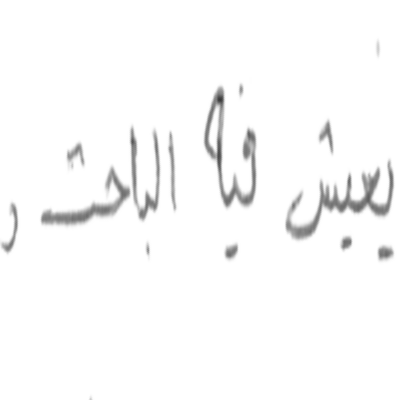 يعيش فيه الباحث ،